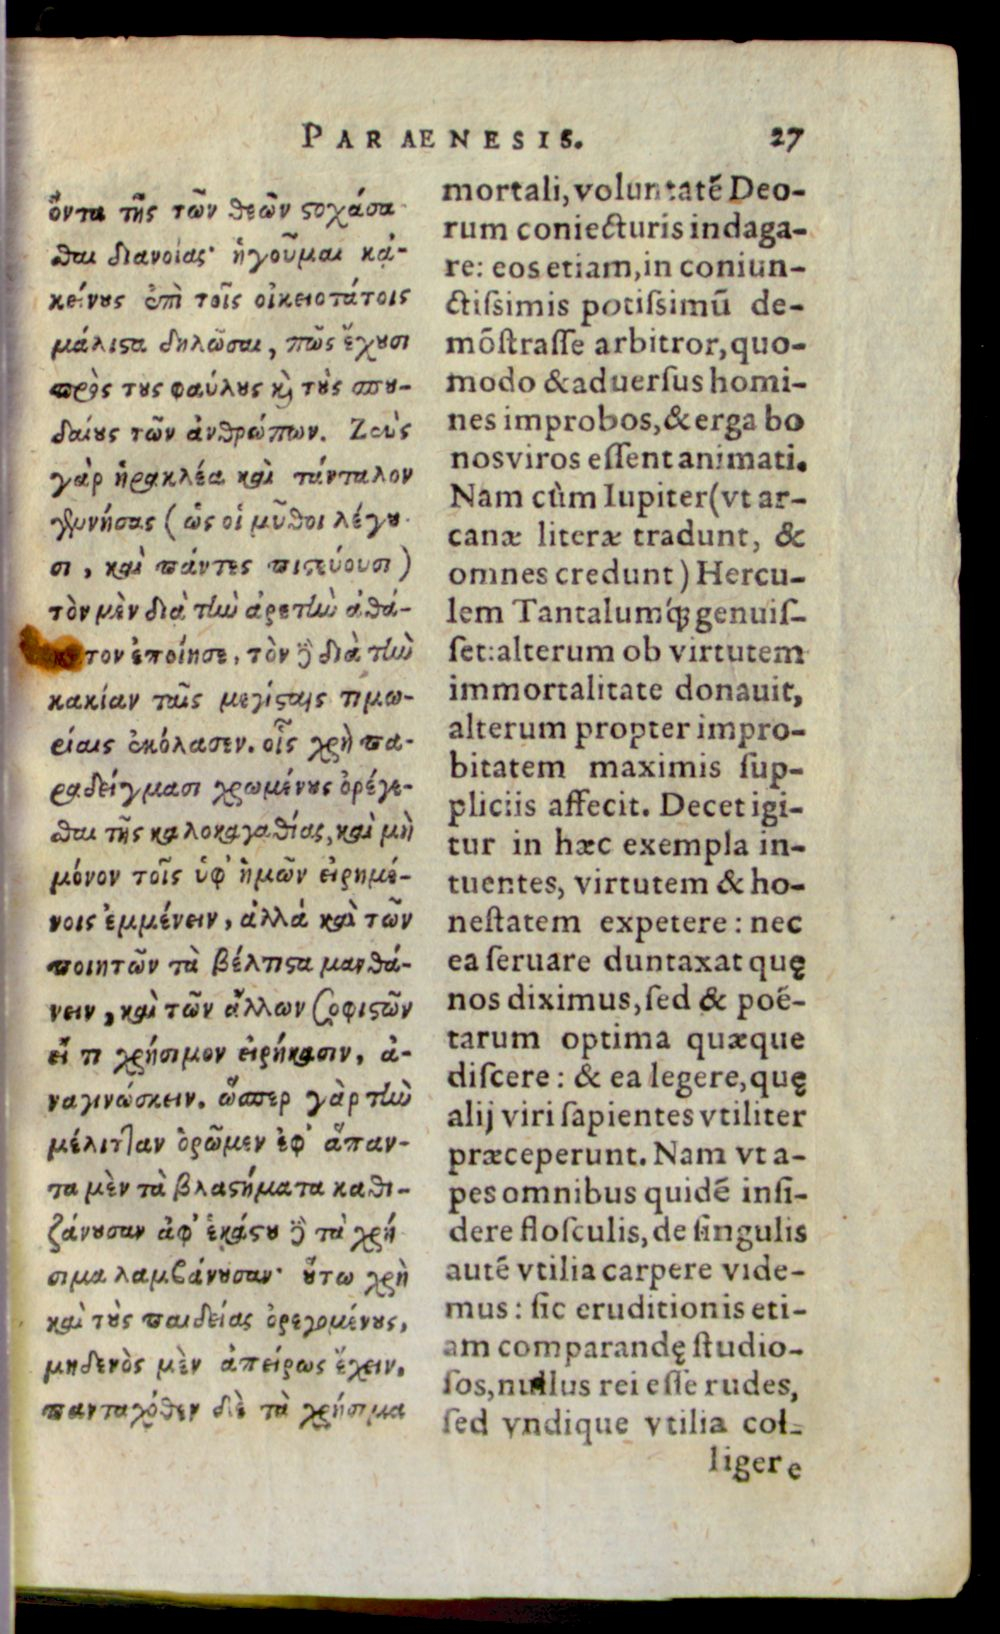 PARAENESIS. 27
ὄντα τῆς τῶν θεῶν ϛοχάσα
σθαι διανοίας· ἡγοῦμαι κἀ-
κείνȣς ἐπὶ τοῖς οἰκειοτάτοις
μάλιϛα δηλῶσαι, πῶς ἔχȣσι
πρὸς τȣς φαύλȣς κ̀ τȣ̀ς σπȣ-
δαίȣς τῶν ἀνθρώπων. Ζεὺς
γὰρ ἡρακλέα καὶ τάνταλον
γεννήσας (ὡς οἱ μῦθοι λέγȣ-
σι, καὶ πάντες πιϛεύουσι)
τὸν μὲν διὰ τὴν ἀρετὴν ἀθά-
τον ἐποίησε, τὸν δὲ διὰ τὴν
κακίαν ταῖς μεγίϛαις τιμω-
ρίαις ἐκόλασεν. οἷς χρὴ πα-
ραδείγμασι χρωμένȣς ὀρέγε-
σθαι τῆς καλοκαγαθίας, καὶ μὴ
μόνον τοῖς ὑφ' ἡμῶν εἰρημέ-
νοις ἐμμένειν, ἀλλά καὶ τῶν
ποιητῶν τὰ βέλτιϛα μανθά-
νειν, καὶ τῶν ἄλλων σοφιϛῶν
εἴ τι χρήσιμον εἰρήκασιν, ἀ-
ναγινώσκειν. ὥσπερ γὰρ τὴν
μέλιτταν ὁρῶμεν ἐφ' ἅπαν-
τα μὲν τὰ βλαϛήματα καθι-
ζάνȣσαν ἀφ' ἑκάϛȣ δὲ τὰ χρή
σιμα λαμβάνȣσαν· ȣ̓́τω χρὴ
καὶ τȣ̀ς παιδείας ὀρεγομένȣς,
μηδενὸς μὲν ἀπείρως ἔχειν,
πανταχόθεν δὲ τὰ χρήσιμα
mortali, voluntatē Deo-
rum coniecturis indaga-
re: eos etiam, in coniun-
ctiſsimis potiſsimū de-
mōſtraſſe arbitror, quo-
modo & aduerſus homi-
nes improbos, & erga bo
nos viros eſſent animati.
Nam cùm Iupiter (vt ar-
canæ literæ tradunt, &
omnes credunt) Hercu-
lem Tantalumq́ꝫ genuiſ-
ſet: alterum ob virtutem
immortalitate donauit,
alterum propter impro-
bitatem maximis ſup-
pliciis affecit. Decet igi-
tur in hæc exempla in-
tuentes, virtutem & ho-
neſtatem expetere: nec
ea ſeruare duntaxat quę
nos diximus, ſed & poë-
tarum optima quæque
diſcere: & ea legere, quę
alij viri ſapientes vtiliter
præceperunt. Nam vt a-
pes omnibus quidē inſi-
dere floſculis, de ſingulis
autē vtilia carpere vide-
mus: ſic eruditionis eti-
am comparandę ſtudio-
ſos, nullus rei eſſe rudes,
ſed vndique vtilia col-
ligere